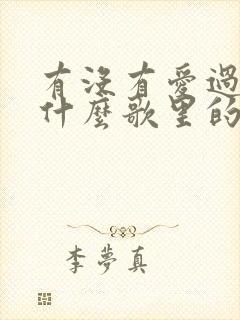 有沒有愛過
什麼歌里的
李夢真